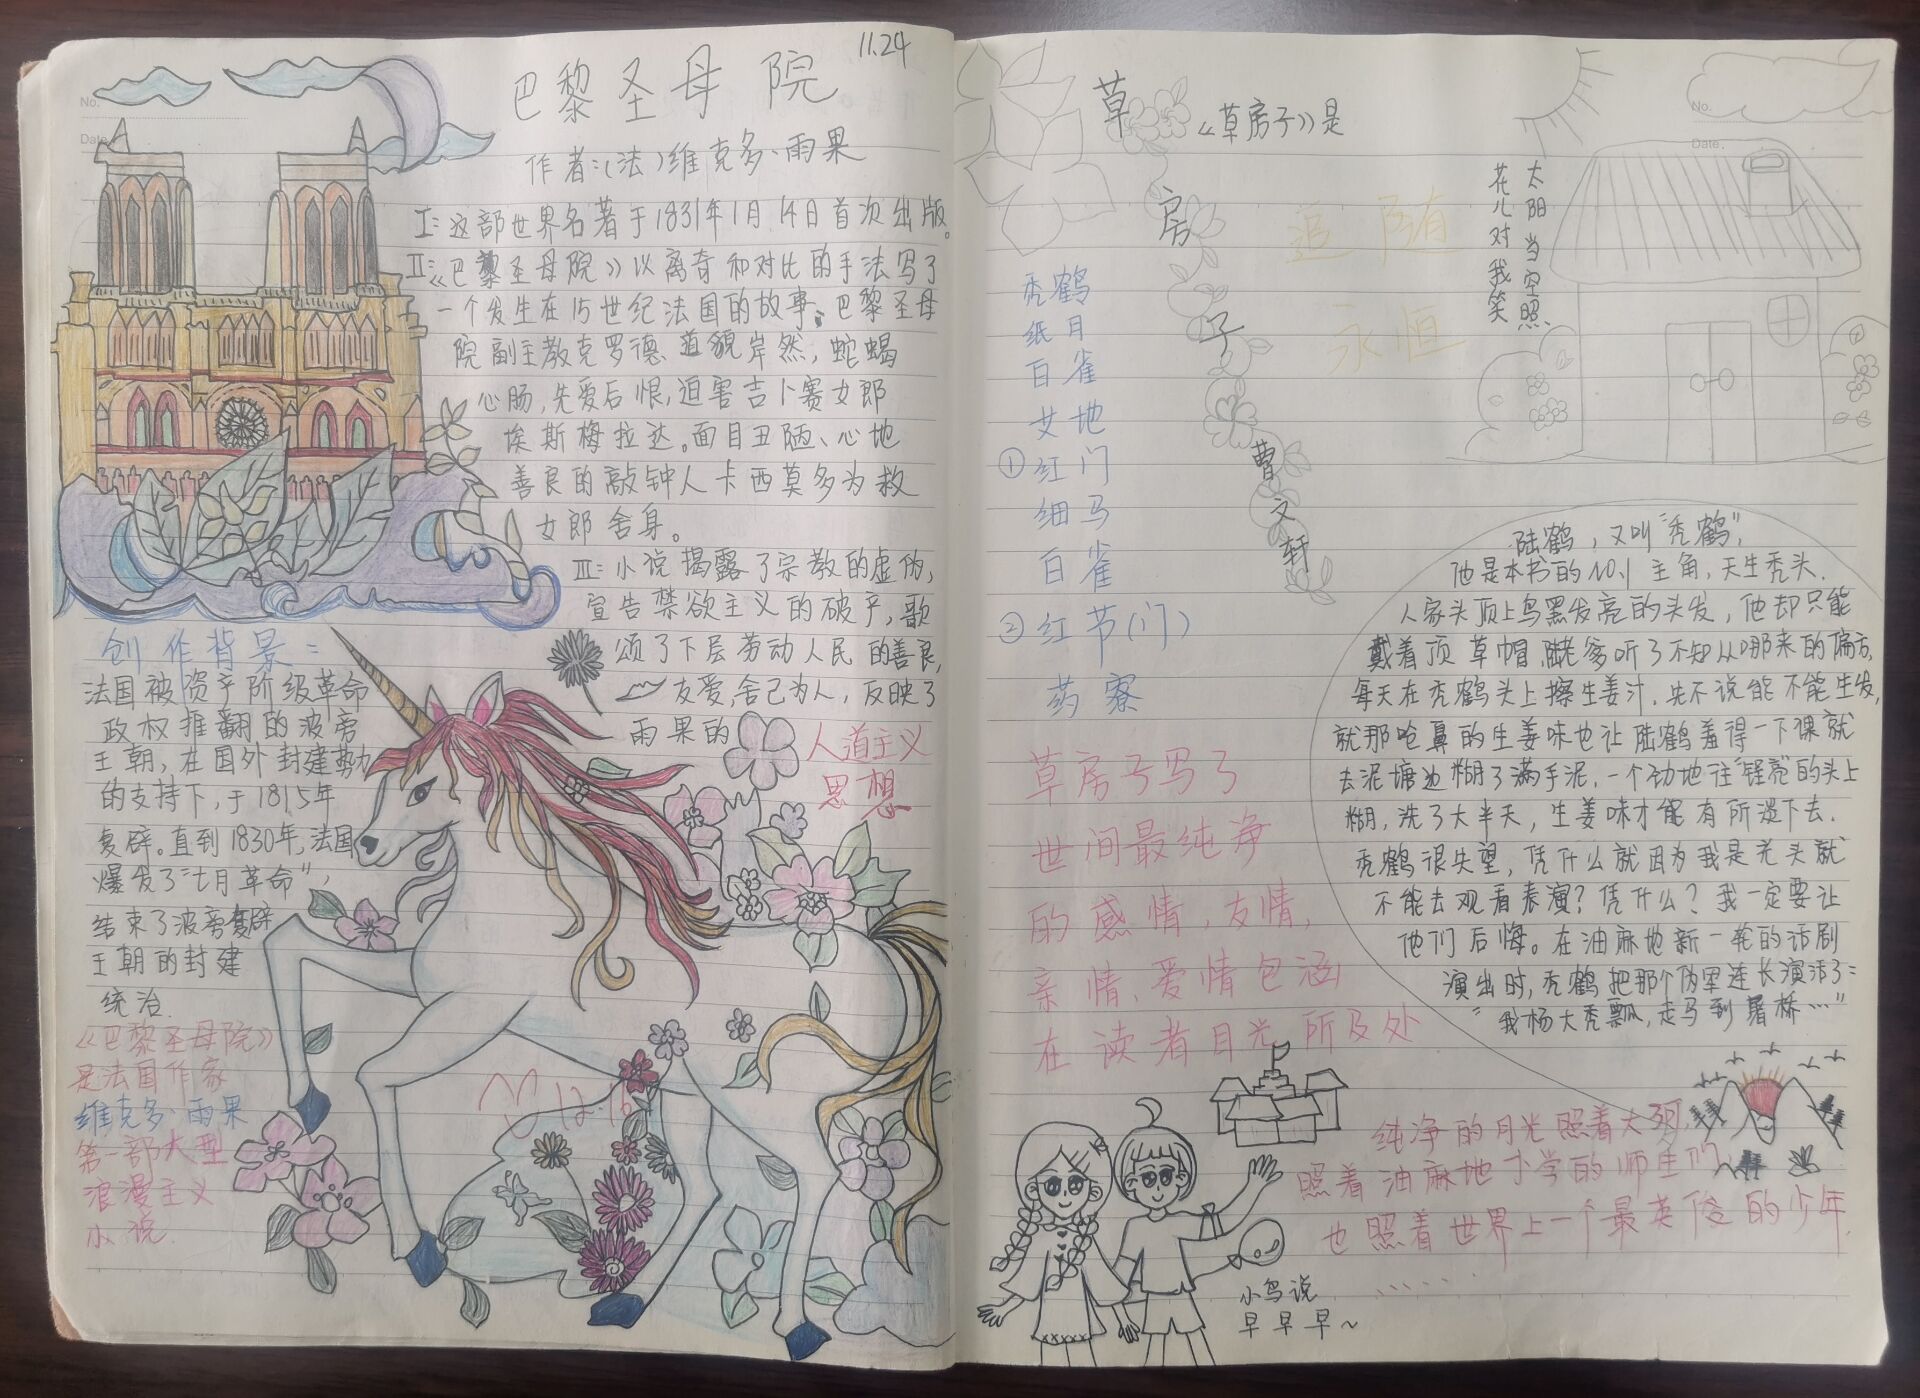 11.24
No.
Date
巴黎圣母院
作者:(法)维克多·雨果
I:这部世界名著于1831年1月14日首次出版。
II:《巴黎圣母院》以离奇和对比的手法写了
一个发生在15世纪法国的故事:巴黎圣母
院副主教克罗德道貌岸然,蛇蝎
心肠,先爱后恨,迫害吉卜赛女郎
埃斯梅拉达。面目丑陋、心地
善良的敲钟人卡西莫多为救
女郎舍身。
III:小说揭露了宗教的虚伪,
宣告禁欲主义的破产,歌
颂了下层劳动人民的善良,
友爱,舍己为人,反映了
雨果的
人道主义
思想
创作背景:
法国被资产阶级革命
政权推翻的波旁
王朝,在国外封建势力
的支持下,于1815年
复辟。直到1830年,法国
爆发了“七月革命”,
结束了波旁复辟
王朝的封建
统治.
《巴黎圣母院》
是法国作家
维克多·雨果
第一部大型
浪漫主义
小说.
12.16
草房子
曹文轩
《草房子》是
追随
永恒
No.
Date.
太阳当空照
花儿对我笑
秃鹤
纸月
白雀
艾地
①红门
细马
白雀
②红节(门)
药寮
草房子写了
世间最纯净
的感情,友情,
亲情、爱情包涵
在读者目光所及处
陆鹤,又叫“秃鹤”,
他是本书的NO.1主角,天生秃头.
人家头顶上乌黑发亮的头发,他却只能
戴着顶草帽.
爹听了不知从哪来的偏方,
每天在秃鹤头上擦生姜汁.先不说能不能生发,
就那呛鼻的生姜味也让陆鹤羞得一下课就
去泥塘边糊了满手泥,一个劲地往“锃亮”的头上
糊,洗了大半天,生姜味才能有所退下去.
秃鹤很失望,凭什么就因为我是光头就
不能去观看表演?凭什么?我一定要让
他们后悔。在油麻地新一轮的话剧
演出时,秃鹤把那个伪军连长演活了:
“我杨大秃瓢,走马到屠桥…”
纯净的月光照着大河,
照着油麻地小学的师生们,
也照着世界上一个最英俊的少年.
……
小鸟说
早早早~